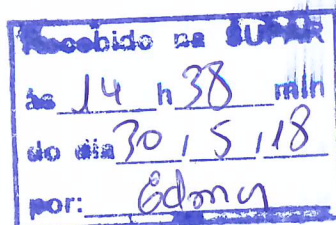 Recebido na SUPAR
às 14 h 38 min
do dia 30 / 5 / 18
por: Edmy